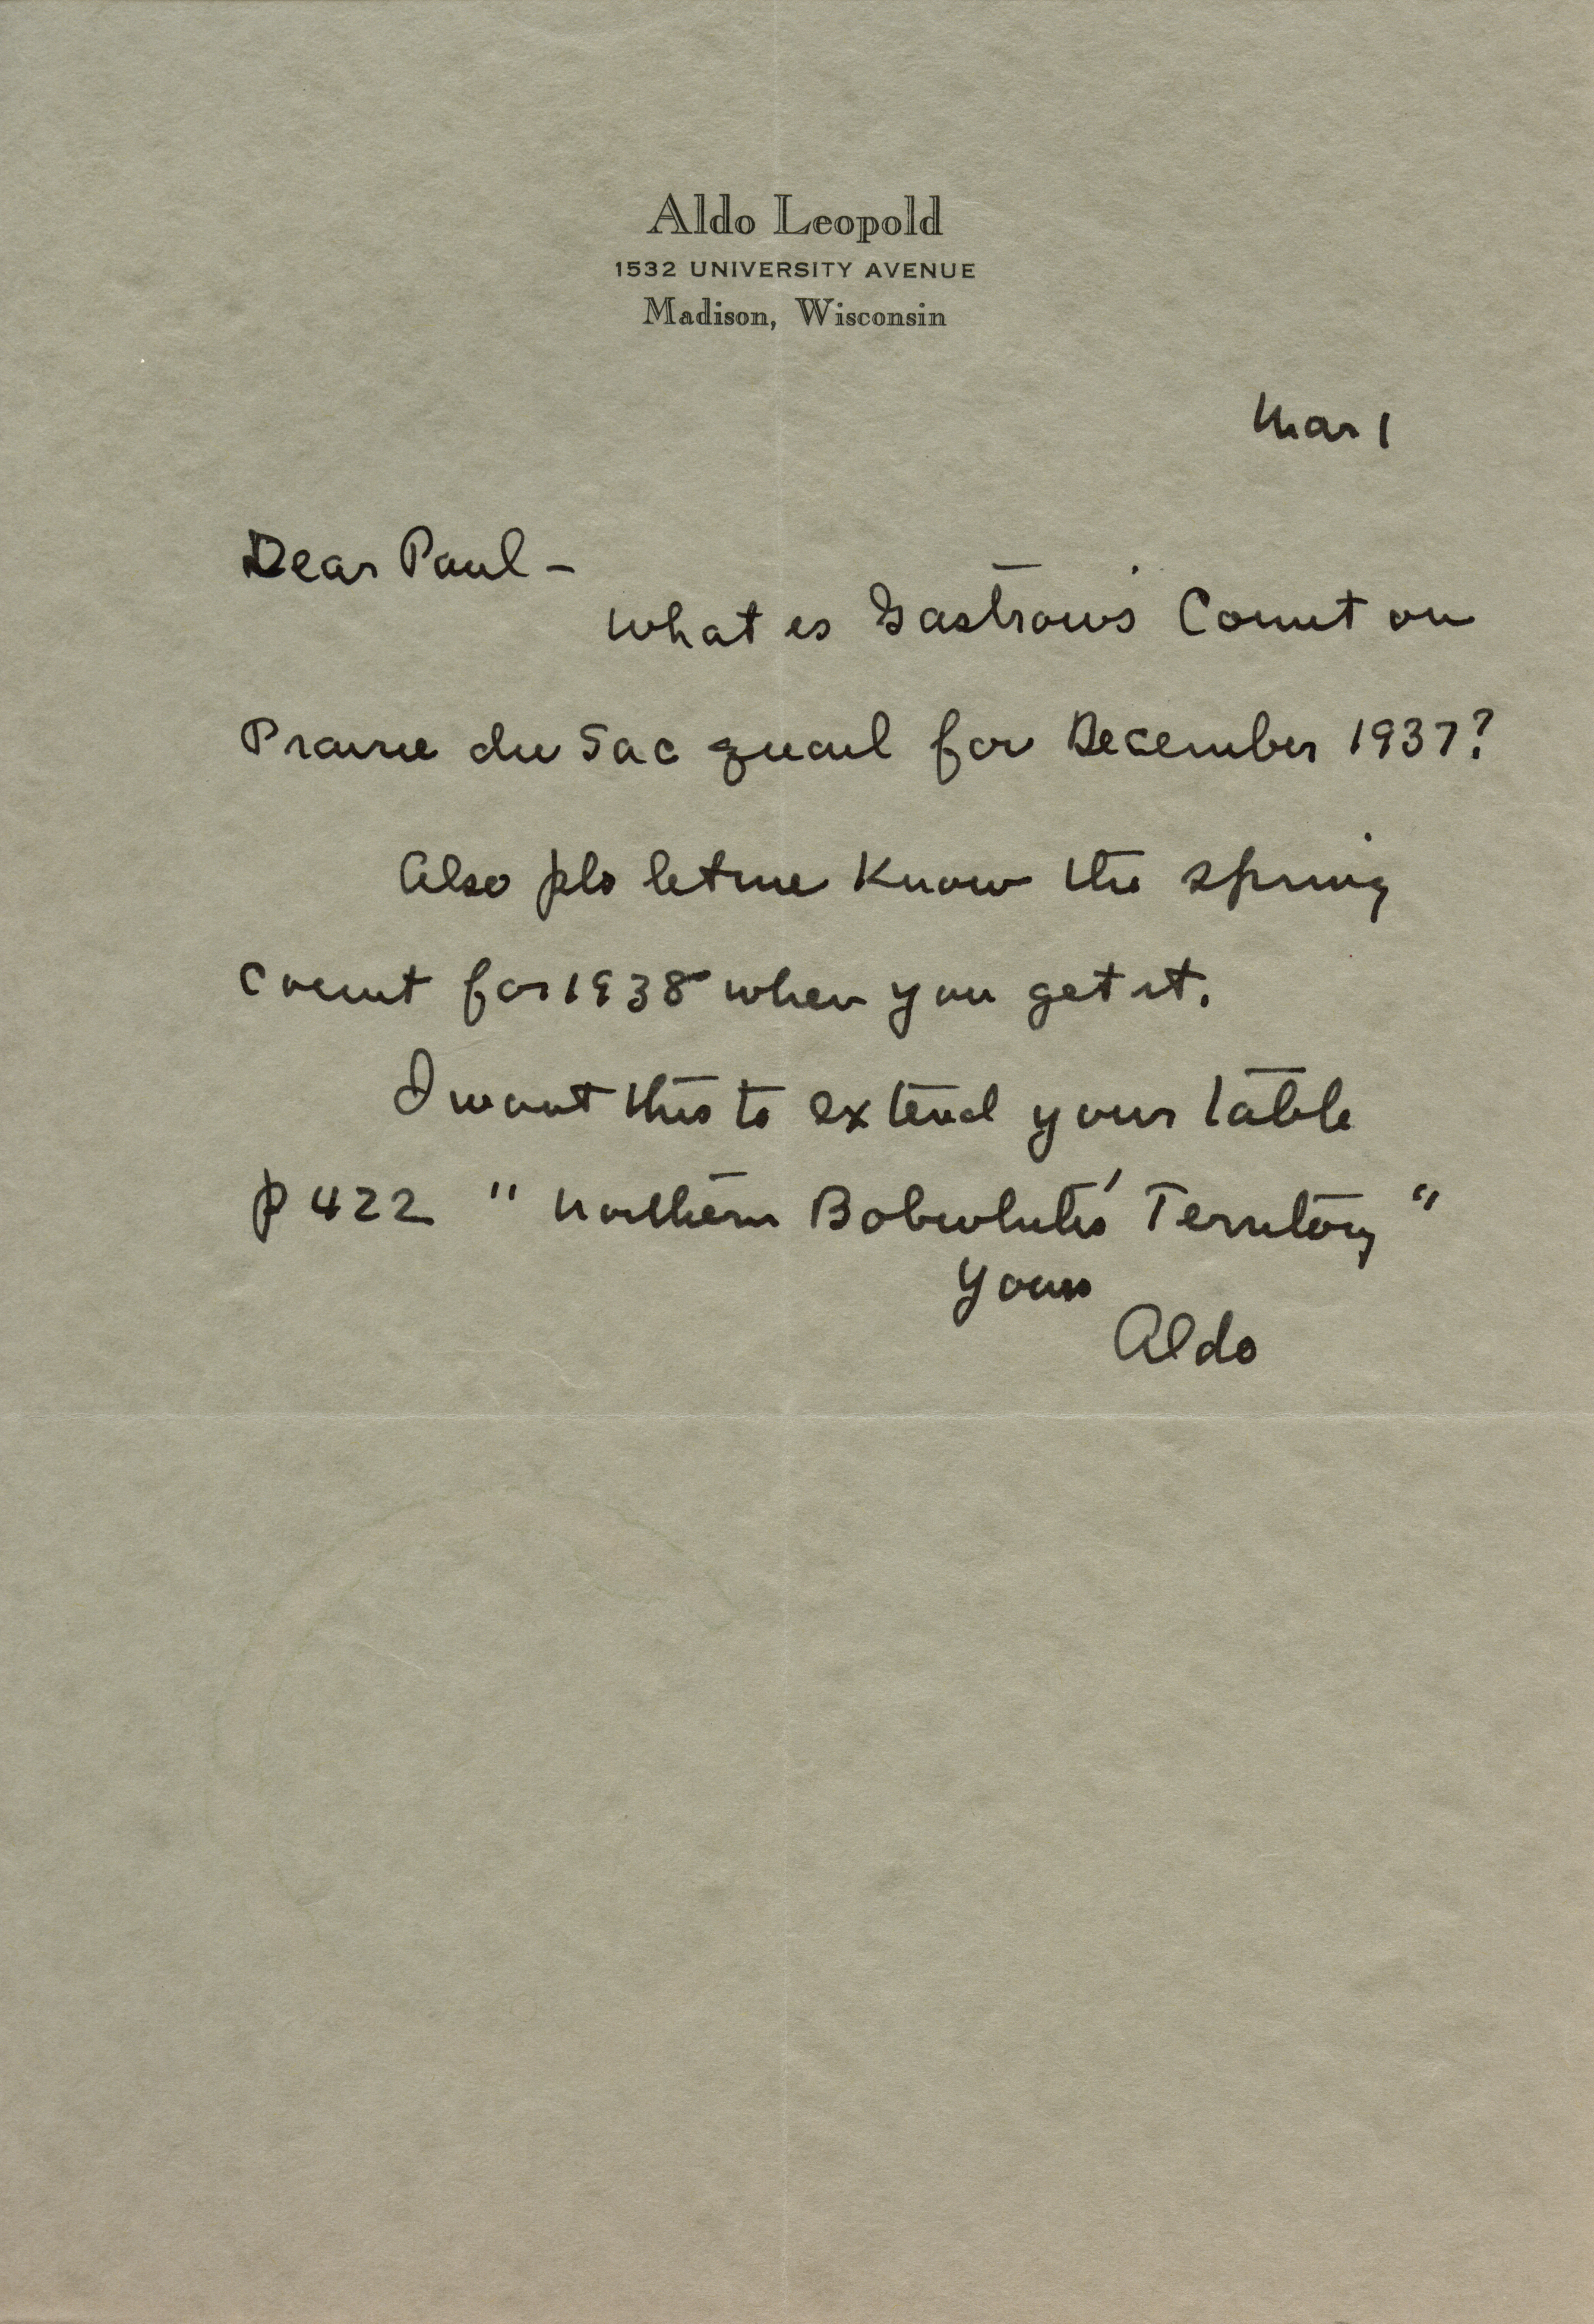 Aldo Leopold
1532 UNIVERSITY AVENUE
Madison, Wisconsin
Mar 1
Dear Paul –
What is Gastrow's Count on
Prairie du Sac quail for December 1937?
Also pls let me know the spring
count for 1938 when you get it.
I want this to extend your table
p 422 "Northern Bobwhite's Territory"
Yours
Aldo